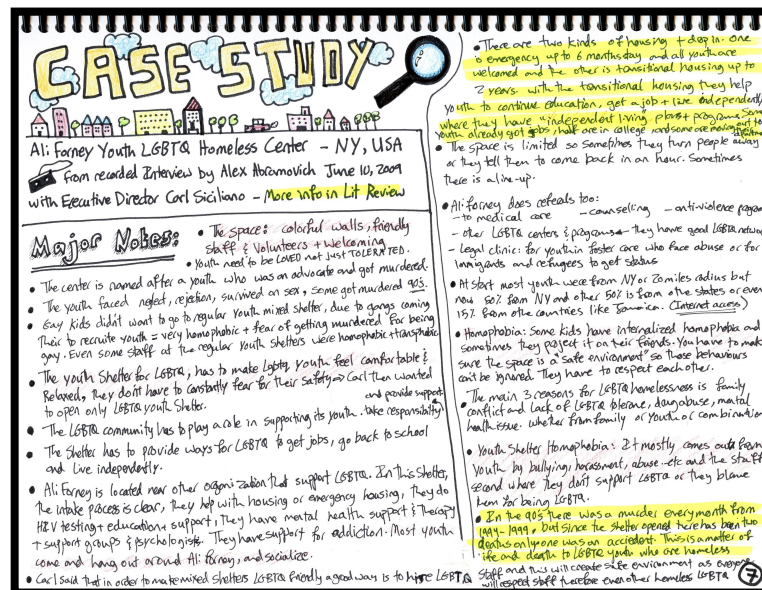 CASE STUDY
Ali Forney Youth LGBTQ Homeless Center - NY, USA
From recorded Interview by Alex Abramovich June 10, 2009
with Executive Director Carl Siciliano - More info in Lit Review
Major Notes:
• The space: colorful walls, friendly
staff & Volunteers + Welcoming
• Youth need to be LOVED not Just TOLERATED.
• The center is named after a youth who was an advocate and got murdered.
• The youth faced neglect, rejection, survived on sex, some got murdered 90's.
• Gay kids didn't want to go to regular Youth mixed shelter, due to gangs coming
their to recruite youth = very homophobic + fear of getting murdered For being
gay. Even some staff at the regular Youth shelters were homophobic + transphobic
• The youth Shelter for LGBTQ, has to make Lgbtq youth feel comfortable &
Relaxed, they don't have to constantly fear for their safety → Carl then wanted
to open only LGBTQ youth Shelter.
and provide support
• The LGBTQ community has to play a role in supporting its youth. take responsibility
• The Shelter has to provide ways for LGBTQ to get jobs, go back to school
and Live independently.
• Ali Forney is located near other organization that support LGBTQ. In this Shelter,
the intake process is clear, they help with housing or emergency housing, they do
HIV testing + education + support, They have mental health support & Therapy
+ support groups & psychologists. They have support for addiction. Most youth
come and hang out around Ali Forney, and socialize.
• Carl said that in order to make mixed shelters LGBTQ friendly a good way is to hire LGBTQ
• There are two kinds of housing + drop in. One
is emergency up to 6 months stay and all youth are
welcomed and the other is transitional housing up to
2 years. with the transitional housing they help
youth to continue education, get a job + live independently
where they have "independent living plans + programs. Some
youth already got jobs, half are in college and some are moving out to
• The space is limited so Sometimes they turn people away
or they tell them to come back in an hour. Sometimes
there is a line-up.
• Ali forney does referals too:
- to medical care - counselling - anti-violence program
- other LGBTQ centers & programs - they have good LGBTQ network
- Legal clinic: for youth in foster care who face abuse or for
Immigrants and refugees to get status
• At start most youth were from NY or 20 miles radius but
now 50% from NY and other 50% is from othe states or even
15% from othe countries like Jamaica. (Internet access)
• Homophobia: Some kids have internalized homophobia and
sometimes they project it on their friends. You have to make
sure the space is a "safe environment" so these behaviours
can't be ignored. They have to respect each other.
• The main 3 reasons for LGBTQ homelessness is family
conflict and lack of LGBTQ tolerence, drug abuse, mental
health issue. whether from family or youth or combination
• Youth Shelter Homophobia: It mostly comes out from
youth by bullying, harassment, abuse..etc and the staff
second where they don't support LGBTQ or they blame
them for being LGBTQ.
• In the 90's there was a murder every month from
1994-1999, but since the shelter opened there has been two
deaths only one was an accident. This is a matter of
life and death to LGBTQ youth who are homeless
Staff and this will create safe environment as everyone
will respect staff therefore even other homeless LGBTQ
7